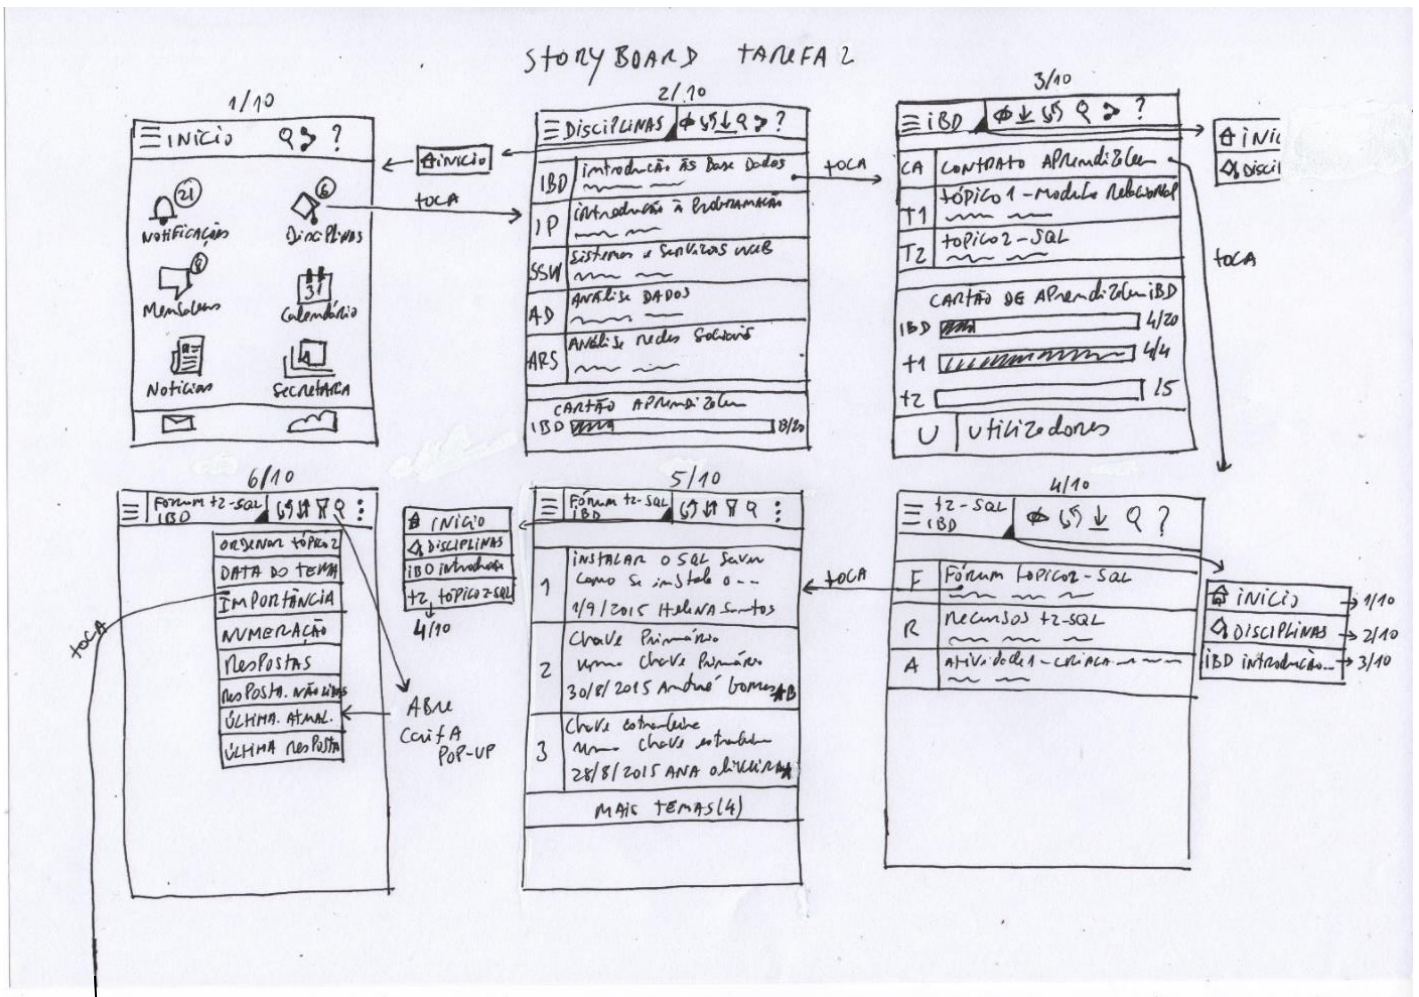 STORYBOARD TAREFA 2
1/10
INÍCIO ?
21
6
Notificações
Disciplinas
Mensagens
31
Calendário
Notícias
Secretaria
INÍCIO
TOCA
2/10
DISCIPLINAS ?
IBD introdução às Base Dados
IP introdução à Programação
SSW Sistemas e Serviços WEB
AD ANÁLISE DADOS
ARS Análise redes Sociais
CARTÃO APRENDIZAGEM
IBD 8/20
TOCA
3/10
IBD ?
CA CONTRATO APRENDIZAGEM
T1 TÓPICO 1 - Modulo Relacional
T2 TOPICO 2 - SQL
CARTÃO DE APRENDIZAGEM IBD
IBD 4/20
T1 4/4
T2 15
U Utilizadores
INIC
DISCI
TOCA
4/10
T2-SQL
IBD ?
F Fórum TOPICO2-SQL
R Recursos T2-SQL
A Atividade1-CRIACA
INÍCIO → 1/10
DISCIPLINAS → 2/10
IBD introdução... → 3/10
TOCA
5/10
Fórum T2-SQL
IBD
1 INSTALAR O SQL Server
Como se instala o --
1/9/2015 HELENA Santos
2 Chave Primária
uma Chave Primária
30/8/2015 André Gomes
3 Chave estrangeira
uma chave estrangeira
28/8/2015 ANA OLIVEIRA
MAIS TEMAS (4)
INÍCIO
DISCIPLINAS
IBD introdução
T2 TÓPICO2-SQL
4/10
6/10
Fórum T2-SQL
IBD
ORDENAR TÓPICO 2
DATA DO TEMA
IMPORTÂNCIA
NUMERAÇÃO
RESPOSTAS
RESPOSTA. NÃO LIDAS
ÚLTIMA. ATUAL.
ÚLTIMA RESPOSTA
ABRE
CAIXA
POP-UP
TOCA